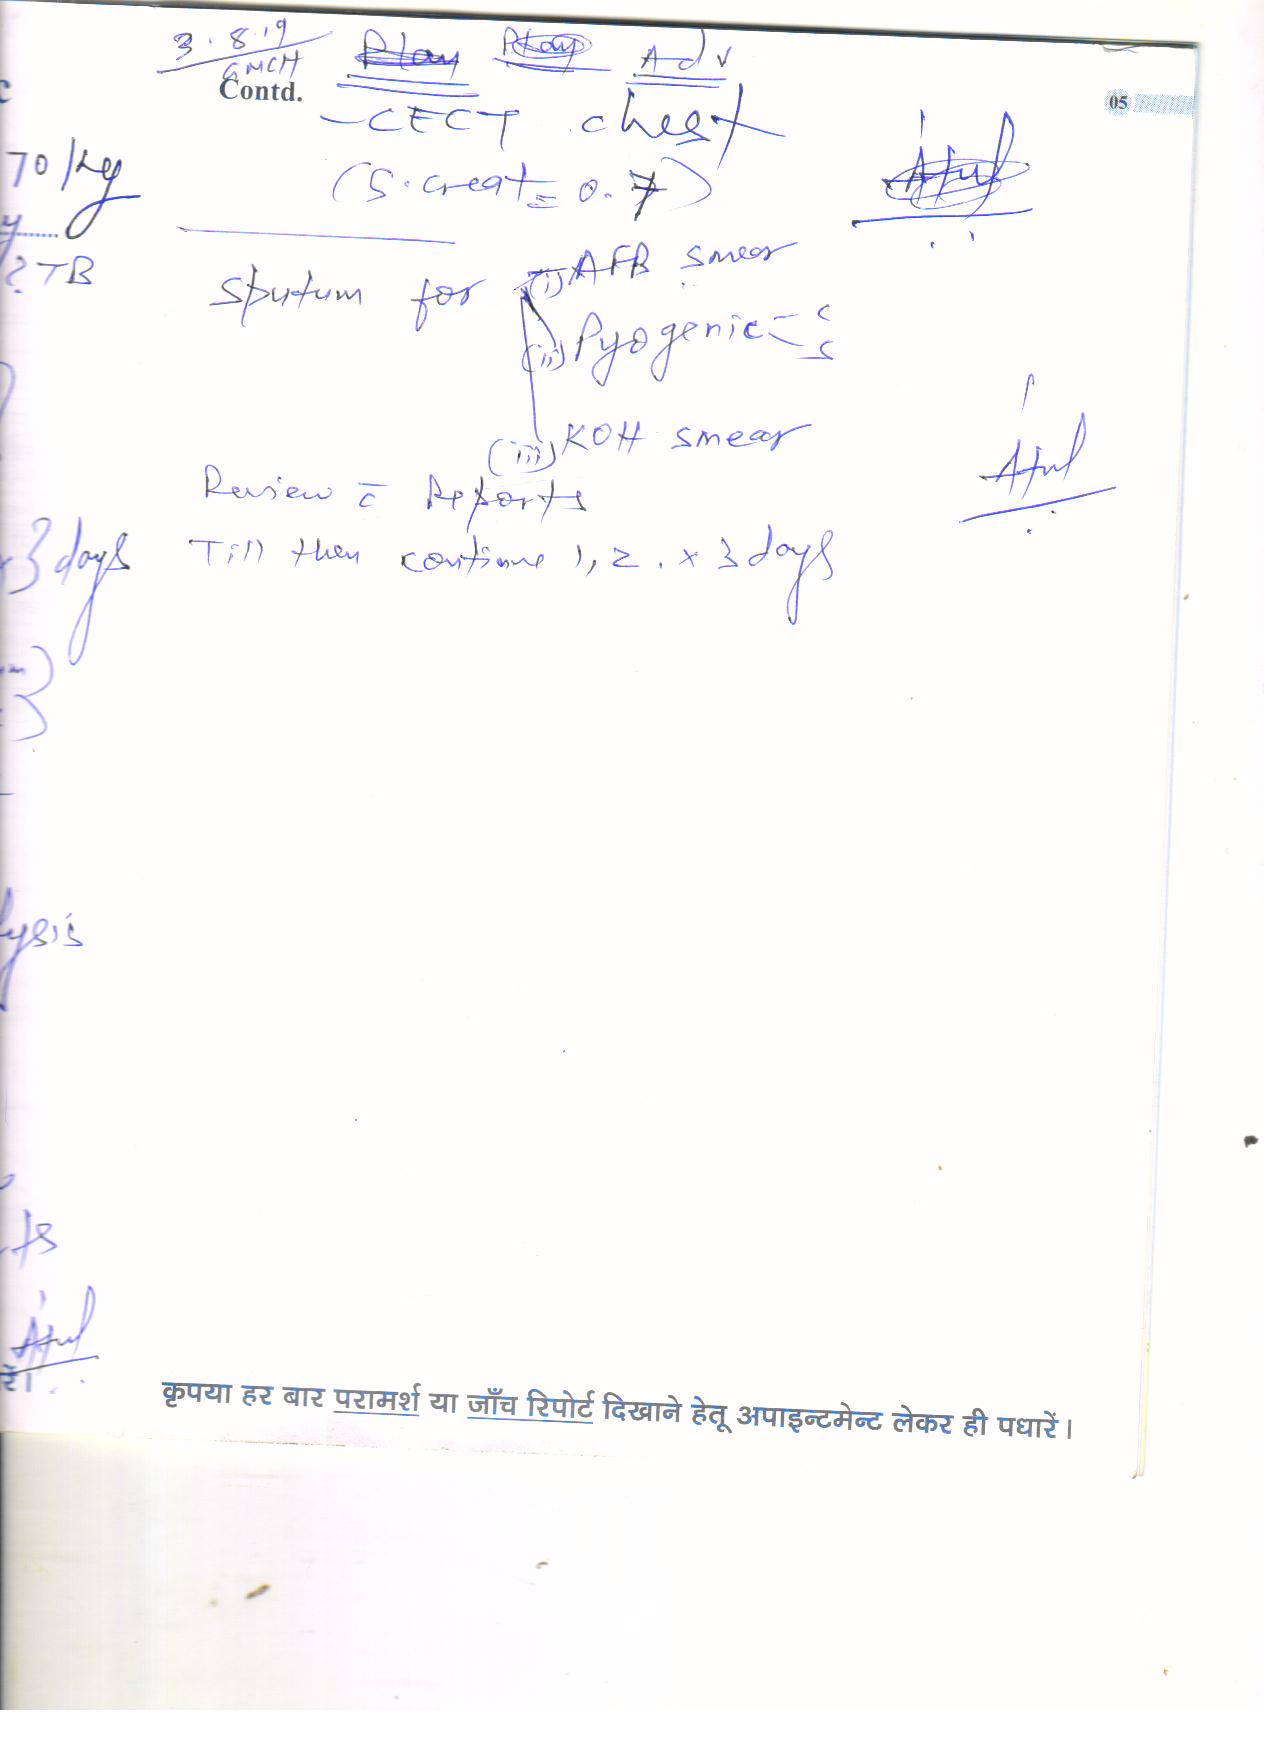 3.8.19
GMCH
Play Play Adv
Contd.
05
- CECT chest
(S. creat = 0.7)
Atul
70 kg
? TB
Sputum for (i) AFB smear
(ii) Pyogenic - C
S
(iii) KOH smear
Atul
Review c̄ Reports
Till then continue 1, 2. x 3 days
x 3 days
lysis
ts
Atul
रें।
कृपया हर बार परामर्श या जाँच रिपोर्ट दिखाने हेतू अपाइन्टमेन्ट लेकर ही पधारें।